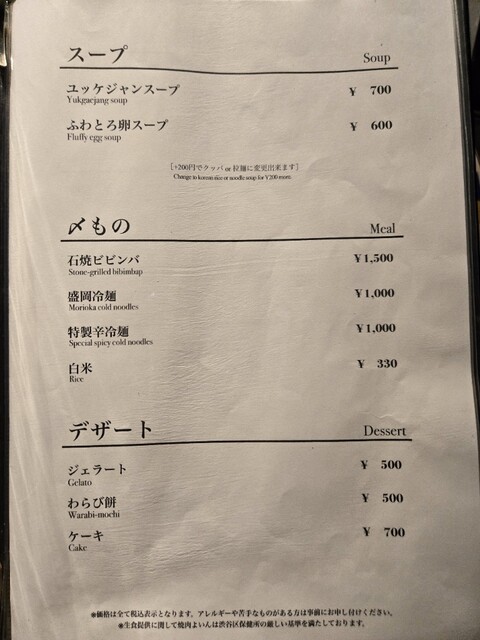 スープ Soup
ユッケジャンスープ ¥ 700
Yukgaejang soup
ふわとろ卵スープ ¥ 600
Fluffy egg soup
［+200円でクッパ or 拉麺に変更出来ます］
Change to korean rice or noodle soup for ¥200 more.
〆もの Meal
石焼ビビンバ ¥1,500
Stone-grilled bibimbap
盛岡冷麺 ¥1,000
Morioka cold noodles
特製辛冷麺 ¥1,000
Special spicy cold noodles
白米 ¥ 330
Rice
デザート Dessert
ジェラート ¥ 500
Gelato
わらび餅 ¥ 500
Warabi-mochi
ケーキ ¥ 700
Cake
※価格は全て税込表示となります。アレルギーや苦手なものがある方は事前にお申し付けください。
※生食提供に関して焼肉よいんは渋谷区保健所の厳しい基準を満たしております。